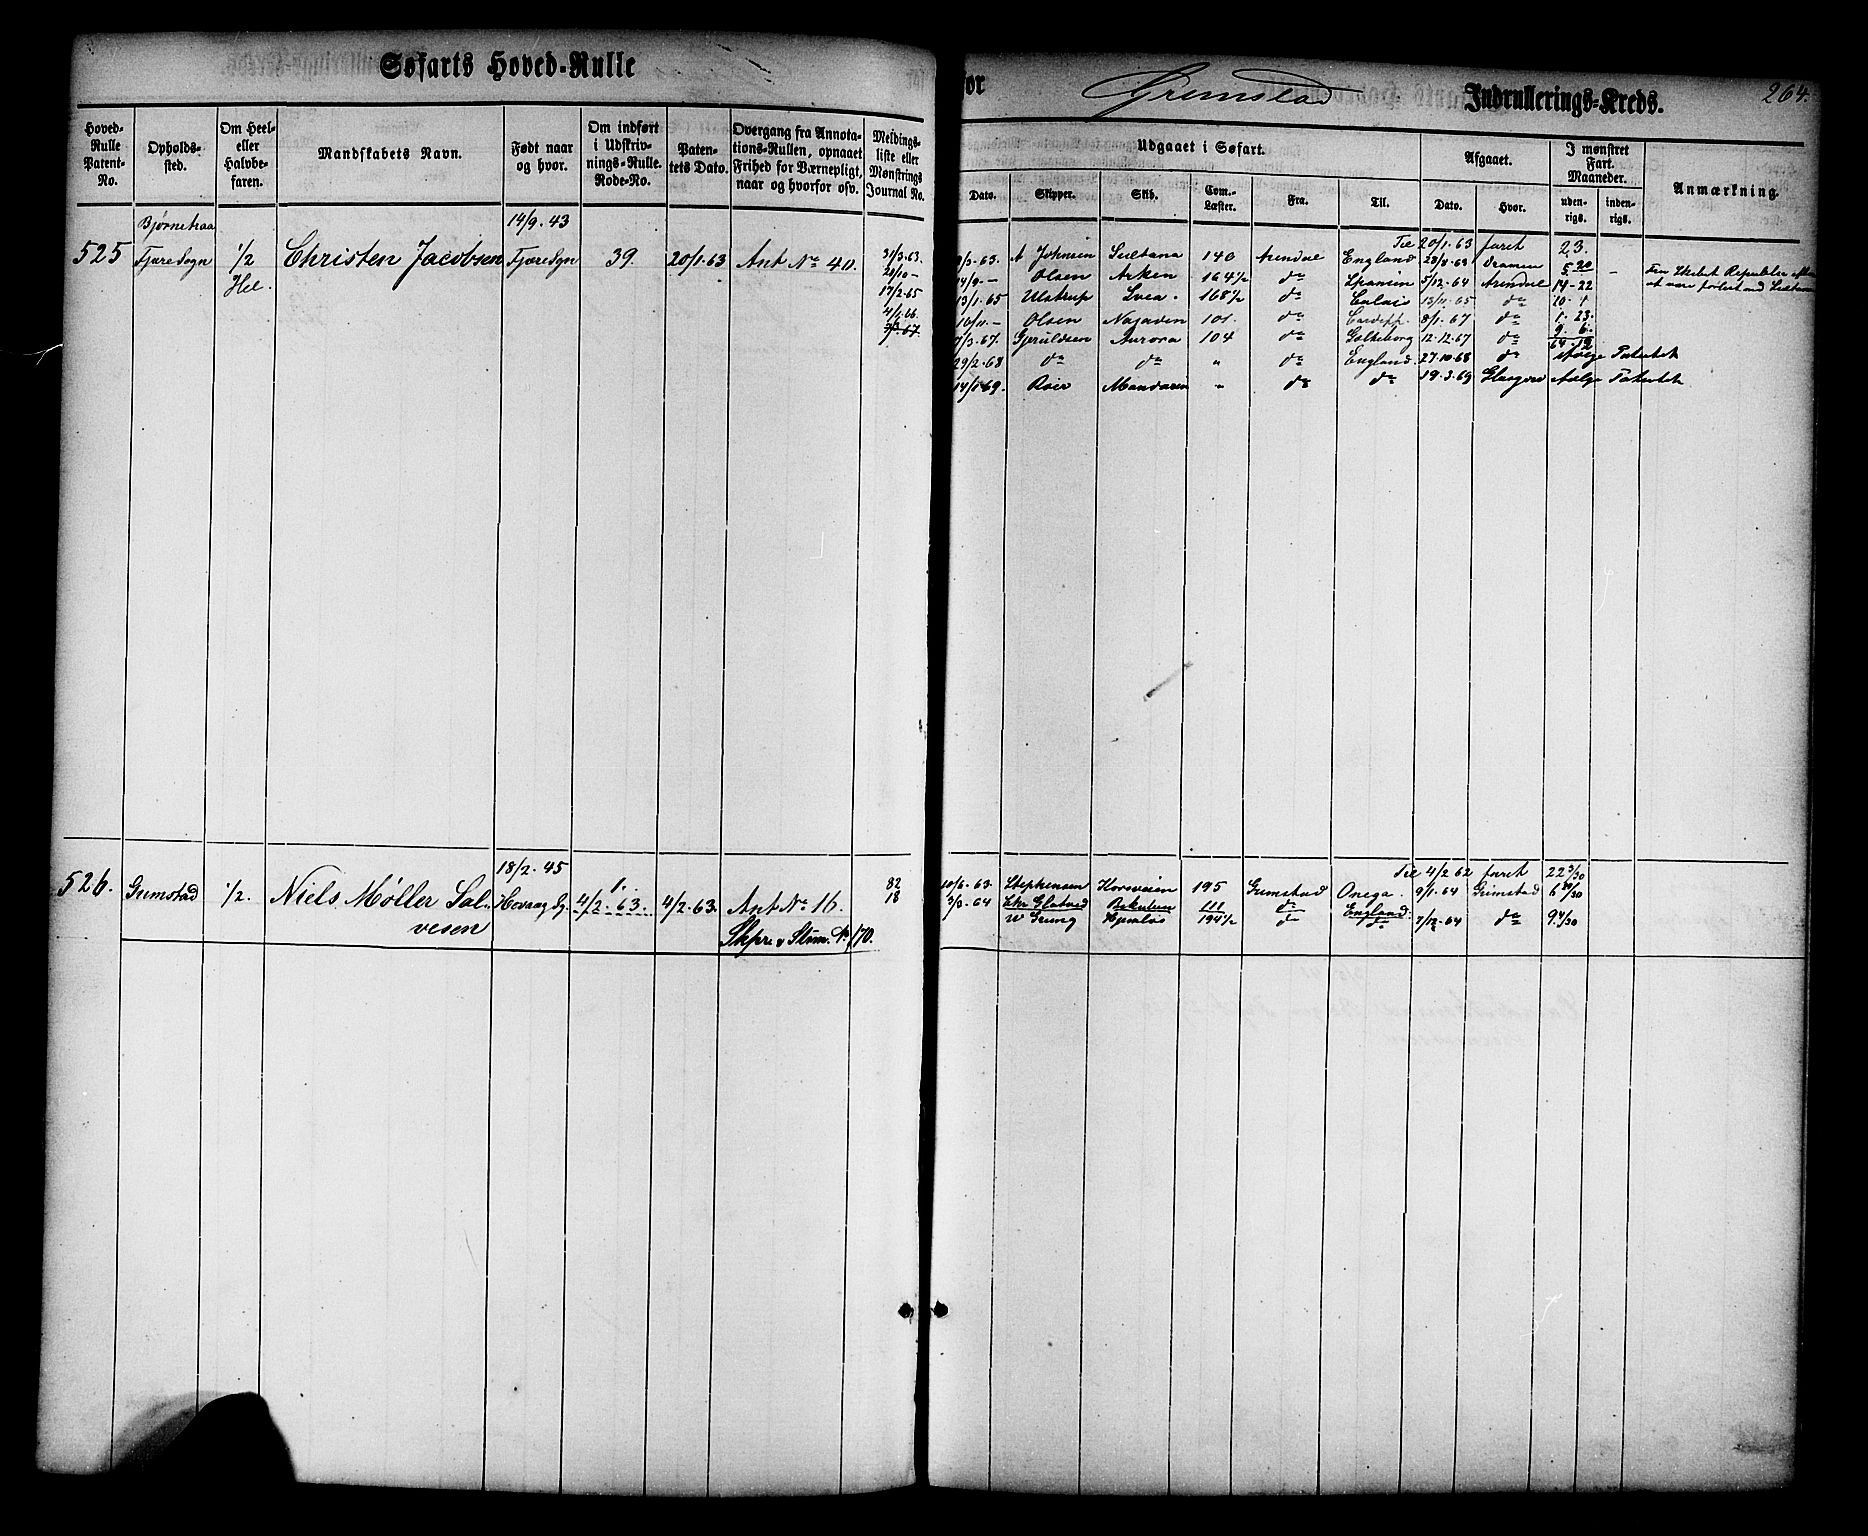 Søfarts Hoved-Rulle
for Grimstad Indrullerings-Kreds. 264.
Hoved-Rulle Patent-No.
Opholds-sted.
Om Heel- eller Halvbe-faren.
Mandskabets Navn.
Født naar og hvor.
Om indført i Udskriv-nings-Rulle. Rode-No.
Paten-tets Dato.
Overgang fra Annota-tions-Rullen, opnaaet Frihed for Værnepligt, naar og hvorfor osv.
Meldings-liste eller Mønstrings Journal No.
Udgaaet i Søfart.
Dato. Skipper. Skib. Com.-Læster. Fra. Til.
Afgaaet.
Dato. Hvor.
I mønstret Fart. Maaneder.
uden-rigs. inden-rigs.
Anmærkning.
14/9. 43
525 Fjære Sogn 1/2 Christen Jacobsen Fjære Sgn 39. 20/1. 63 Ant No 40. 31/3. 63.
Hel. 17/2. 65
Til 20/1. 63 faret 23.
/3. 63. A Johnsen Sultana 140 Arendal England 28/8. 63 Drammen 5-20
14/9 - Olsen 164 1/2 do Spanien 5/12. 64 Arendal 14-22
13/1. 65 Ulstrup Svea. 168 1/2 do Calais 13/11. 65 do 10. 1
10/11. - Olsen Najaden 101. do Cardiff 8/1. 67 do 1. 23.
7/3. 67. Gjeruldsen Aurora 104 do Gøtheborg 12. 12. 67 do 9. 6.
29/2. 68 do do " do England 27. 10. 68 do Ifølge Patentet
14/1. 69. Roer Mandarin " do do 19. 3. 69 Glasgow Ifølge Patentet
18/2. 45
526. Grimstad 1/2. Niels Møller Sal- Høvaag Sg. 1. 4/2. 63. 4/2. 63. Ant No 16. 82
vesen 18
Skpr. & Stm. No 170.
Til 4/2 62 faret 22 3/30
10/6. 63. Stephensen Korsveien 195 Grimstad Onega. 9/1. 64 Grimstad
3/3. 64 111 do England
Grung 194 1/2 do do 7/12. 64 do 9. 4/30